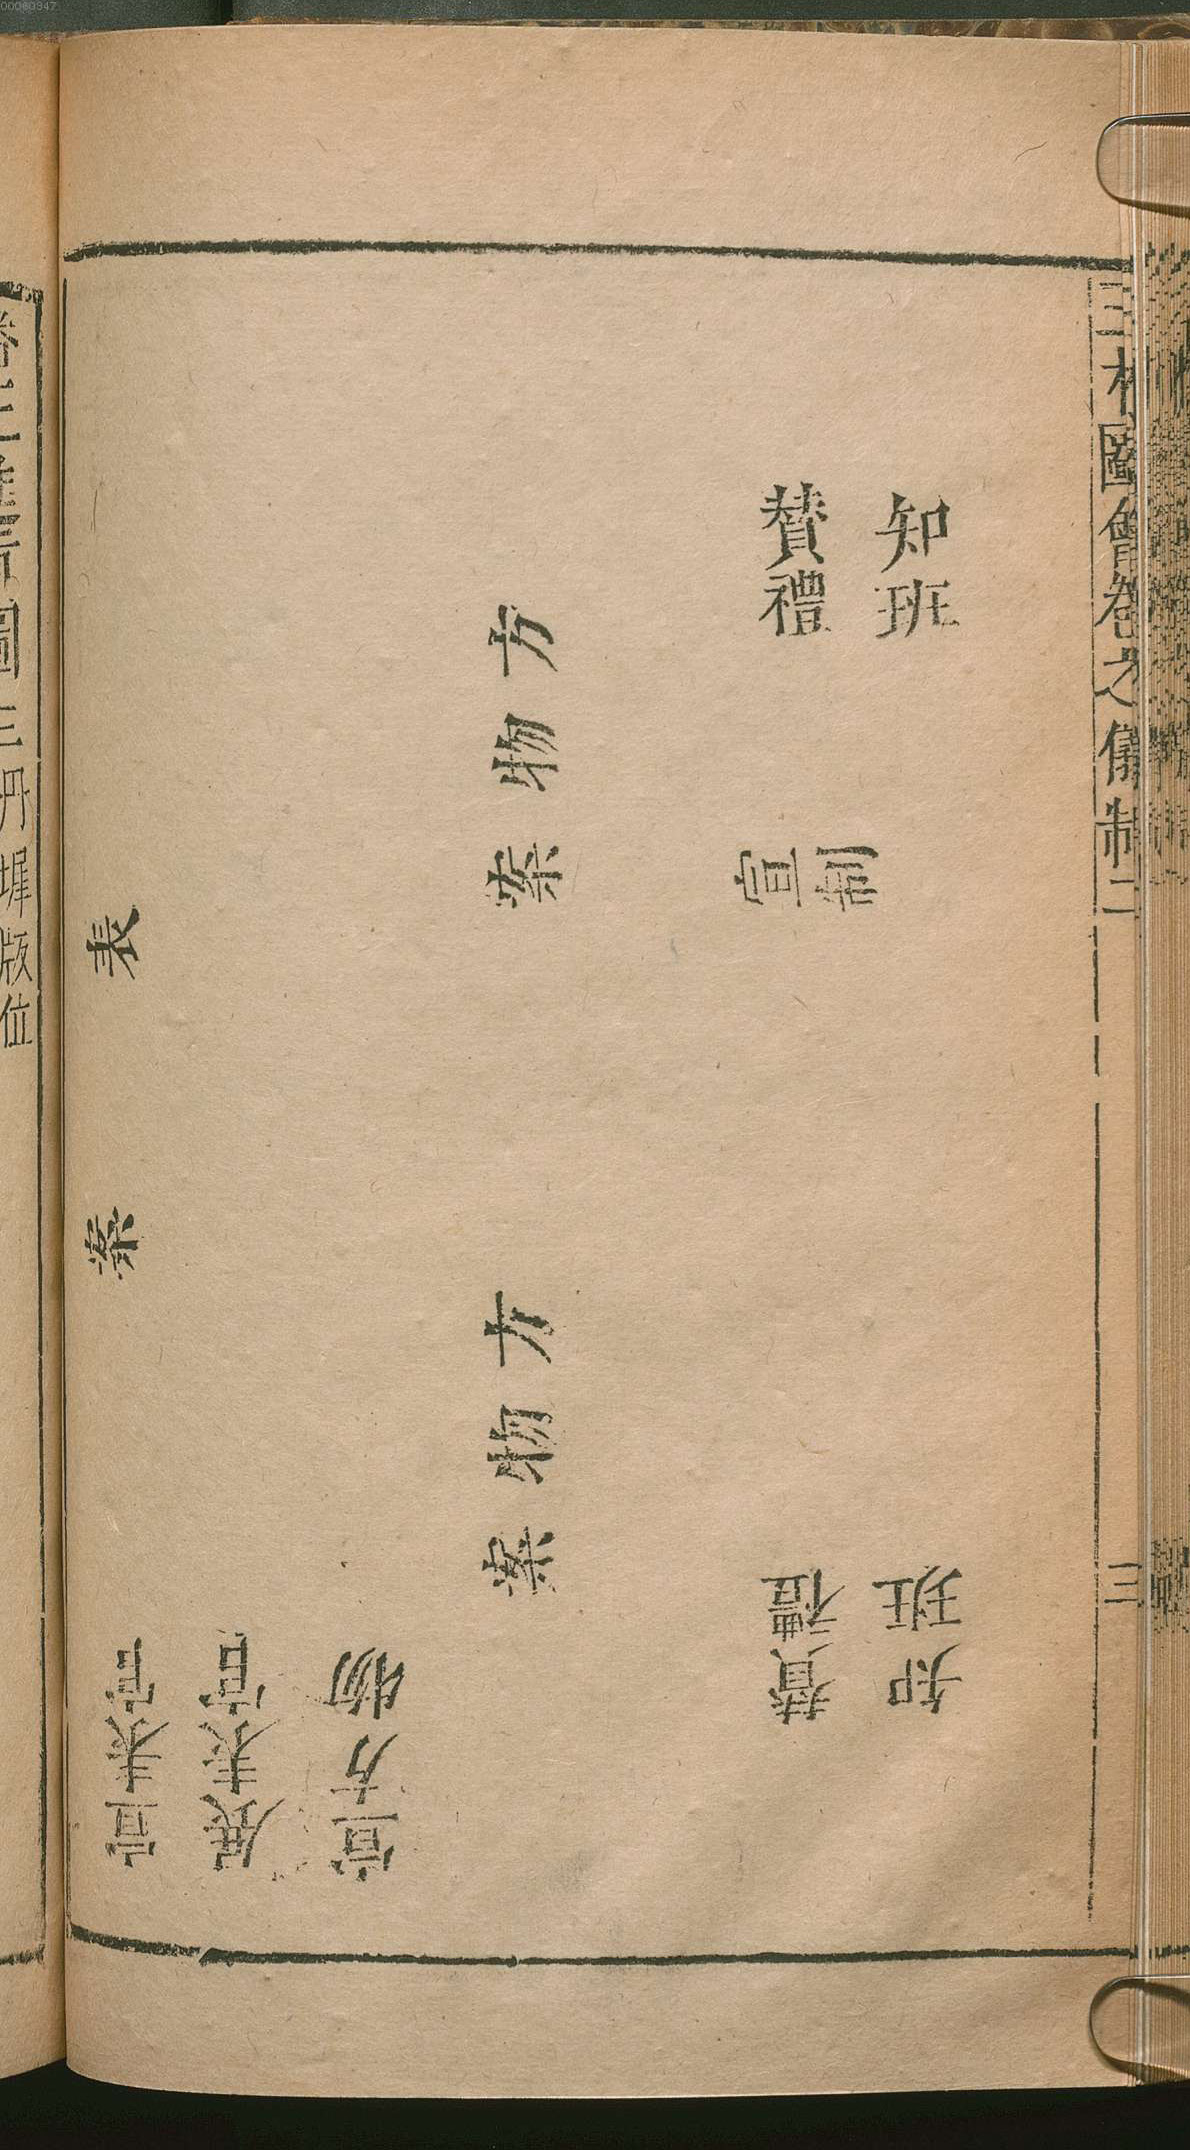 三才圖會卷之儀制二
三
知班
贊禮
知班
贊禮
宣制
方物案
方物案
宣方物
展表官
宣表官
表案
圖三丹墀版位
00060347